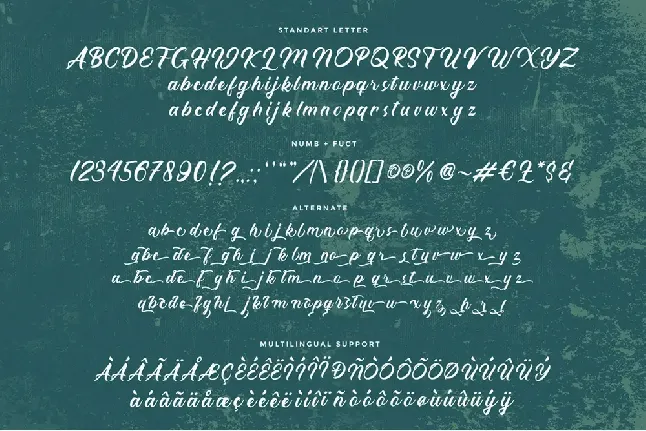 STANDART LETTER
ABCDEFGHIJKLMNOPQRSTUVWXYZ
abcdefghijklmnopqrstuvwxyz
abcdefghijklmnopqrstuvwxyz
NUMB + FUCT
1234567890!?
ALTERNATE
abcdefghijklmnopqrstuvwxyz
abcdefghijklmnopqrstuvwxyz
abcdefghijklmnopqrstuvwxyz
abcdefghijklmnopqrstuvwxyz
MULTILINGUAL SUPPORT
ÀÁÂÃÄÅÆÇÈÉÊËÌÍÎÏÐÑÒÓÔÕÖØÙÚÛÜÝ